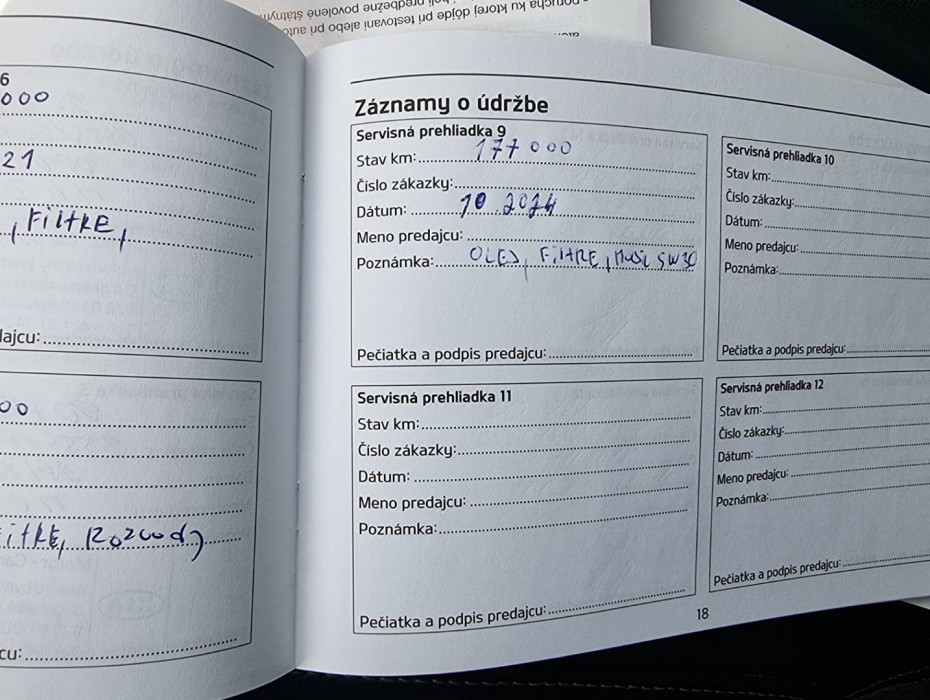 6
000
21
, FiltRE,
dajcu:
00
FiltRE, Rozvody
cu:
Záznamy o údržbe
Servisná prehliadka 9
Stav km: 177 000
Číslo zákazky:
Dátum: 10 2024
Meno predajcu:
Poznámka: OLEJ, FiltRE, 5W30
Pečiatka a podpis predajcu:
Servisná prehliadka 10
Stav km:
Číslo zákazky:
Dátum:
Meno predajcu:
Poznámka:
Pečiatka a podpis predajcu:
Servisná prehliadka 11
Stav km:
Číslo zákazky:
Dátum:
Meno predajcu:
Poznámka:
Pečiatka a podpis predajcu:
Servisná prehliadka 12
Stav km:
Číslo zákazky:
Dátum:
Meno predajcu:
Poznámka:
Pečiatka a podpis predajcu:
18